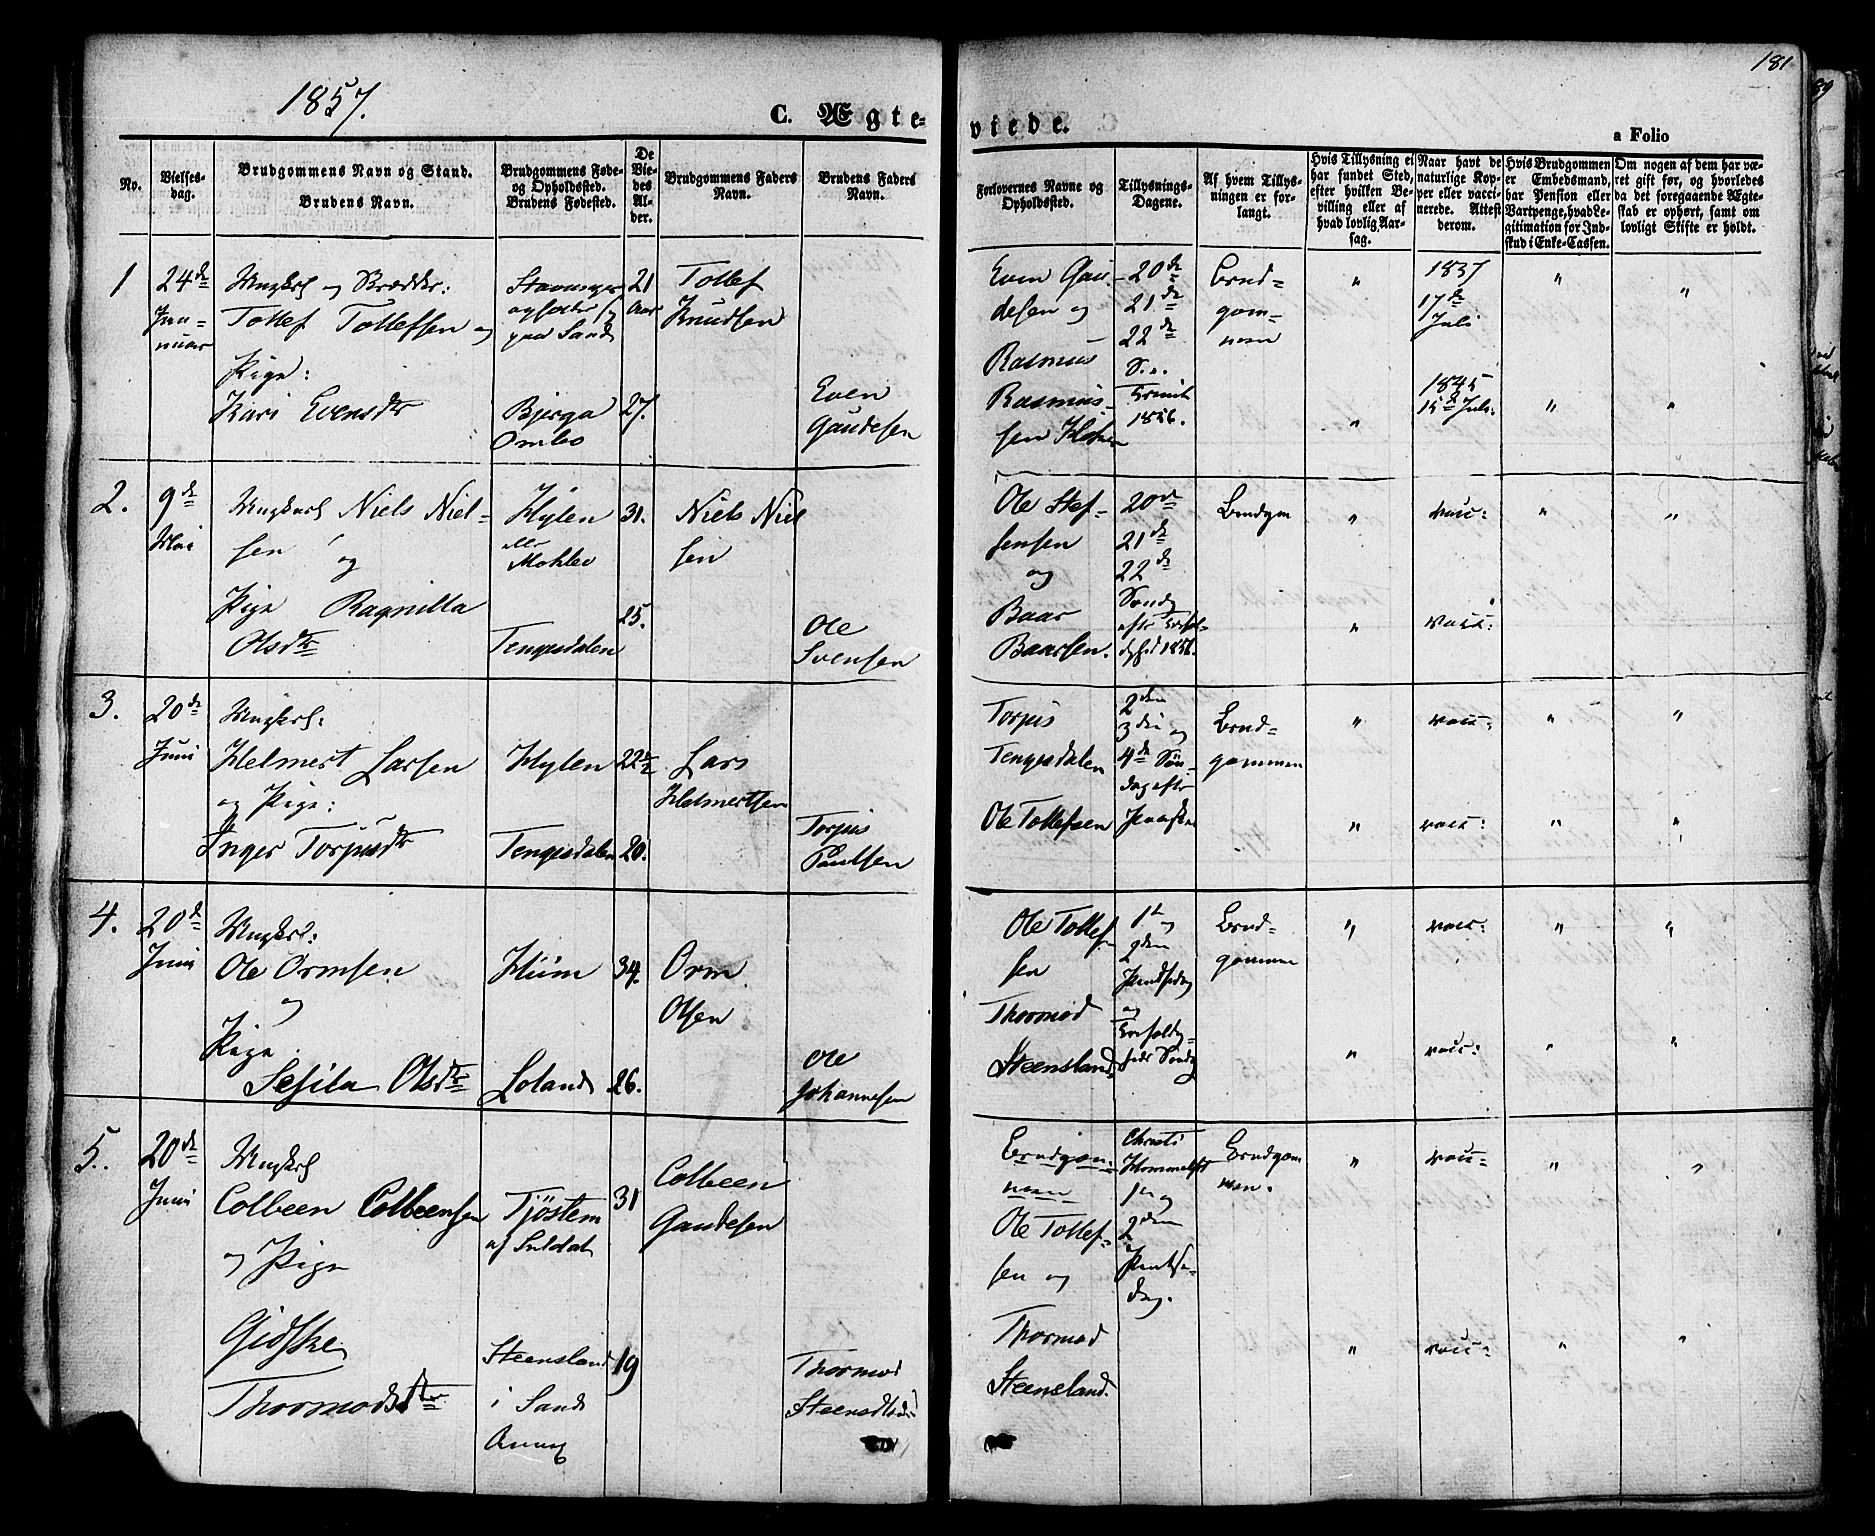 1857.
C. Ægte-
viede.
181
a Folio
No.
Vielses-
dag.
Brudgommens Navn og Stand.
Brudens Navn.
Brudgommens Føde-
og Opholdssted.
Brudens Fødested.
De
Vie-
des
Al-
der.
Brudgommens Faders
Navn.
Brudens Faders
Navn.
Forlovernes Navne og
Opholdssted.
Tillysnings-
Dagene.
Af hvem Tillys-
ningen er for-
langt.
Hvis Tillysning ei
har fundet Sted,
efter hvilken Be-
villing eller af
hvad lovlig Aar-
sag.
Naar havt de
naturlige Kop-
per eller vacci-
nerede. Attest
derom.
Hvis Brudgommen
er Embedsmand,
har Pension eller
Vartpenge, hvad Le-
gitimation for Ind-
skud i Enke-Cassen.
Om nogen af dem har væ-
ret gift før, og hvorledes
da det foregaaende Ægte-
skab er ophørt, samt om
lovligt Skifte er holdt.
1
24de
Jan-
nuar
Ungkarl og
Tollef Tollefsen og
Pige:
Kari Evensdtr
Stavanger
paa Sand
Bjerga
Ombo
21
Aar
27.
Tollef
Knudsen
Even
Gaudesen
Even Gau-
desen og
Rasmus
Rasmus-
sen
20de
21de
22de
S..
Trinit
1856.
Brud-
gom-
men
"
"
1837
17de
Juli
1845
15de Juli.
"
"
"
"
2.
9de
Mai
Ungkarl Niels Niel-
sen
og
Pige Ragnilla
Olsdtr
Hylen
eller
Mokleo
Tengesdalen
31.
25.
Niels Niel
sen
Ole
Svensen
Ole Stef-
fensen
og
Baar
Baarsen.
20de
21de
22de
Sond
efter Trefol-
dghed 1856.
Brudgom
"
"
vacc:
vacc:
"
"
3.
20de
Juni
Ungkarl:
Helmert Larsen
og Pige:
Inger Torpisdtr
Hylen
Tengesdalen
22½
20.
Lars
Helmertsen
Torpis
Paulsen
Torpis
Tengesdalen
Ole Tollefsen
2den
3die og
4de Søn-
dag efter
Paaske
Brud-
gommen
"
"
vacc:
vacc:
"
"
"
"
4.
20de
Juni
Ungkrl:
Ole Ormsen
og
Pige
Sesila Olsdtr
Hiim
Loland
34.
26.
Orm
Olsen
Ole
Johannesen
Ole Tollef
sen
Thormod
Steensland.
1ste og
2den
Pindsedag
og
Trefoldig-
heds Søndg
Brud-
gommen
"
"
vacc:
vacc:
"
"
"
"
5.
20de
Juni
Ungkrl
Colbeen Colbeensen
og Pige
Gidske
Thormodsdtr
Tjöstem
af Suldal
Steensland
i Sand
Annex
31
19
Colbeen
Gaudesen
Thormod
Brudgom-
men
Ole Tollef-
sen og
Thormod
Steensland.
Christi
Himmelfrt
1ste og
2den
Pintse-
dag.
Brudgom
men.
"
"
vacc:
vacc:
"
"
"
"